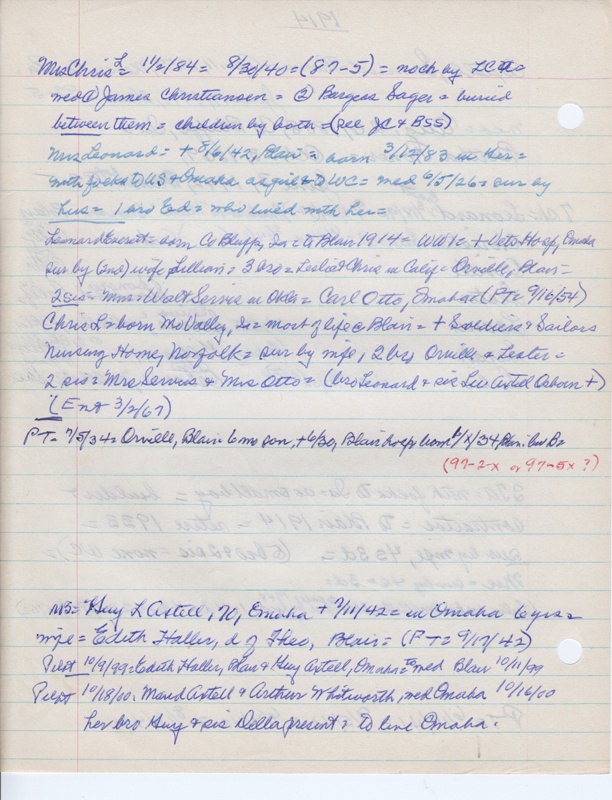 Mrs Chris L = 11/2/84 = 8/30/40 = (87-5) = noch by LC
med ① James Christiansen = ② Burgess Sager = buried
between them = children by both = (see JC & BSS)
Mrs Leonard = + 8/6/42, Blair = born 3/12/83 in
with folks to US & Omaha as girl = to WC = med 6/5/26 = sur by
hus = 1 bro Ed = who lived with her =
Leonard Everett = born Co Bluffs, Ia = to Blair 1914 = WW I = + Vets Hosp, Omaha
sur by (2nd) wife, Lillian = 3 bro = Leslie & Chris in Calif = Orville, Blair =
2 sis = Mrs = Walt Servis in = Carl Otto, Omaha = (PT = 9/16/54)
Chris L = born Mo Vally, Ia = most of life @ Blair = + Soldiers & Sailors
Nursing Home, Norfolk = sur by wife, 2 bro, Orville & Lester =
2 sis = Mrs Servis & Mrs Otto = (bro Leonard & sis Astel Osborn +)
(Ent 3/2/67)
PT = 7/5/34 = Orville, Blair = 6 mo son, + 6/30, Blair hosp born /X/34 Blair bu B =
(97-2-x or 97-5x ?)
NB = Guy L Astell, 70, Omaha + 7/11/42 = in Omaha 6 yrs =
wife = Edith Haller, d of Theo, Blair = (PT = 9/17/42)
Pilot 10/9/99 = Edith Haller, Blair & Guy Astell, Omaha = to med Blair 10/11/99
Pilot 10/18/00. Maud Astell & Arthur Whitworth, med Omaha 10/16/00
her bro Guy & sis Della present = to live Omaha.